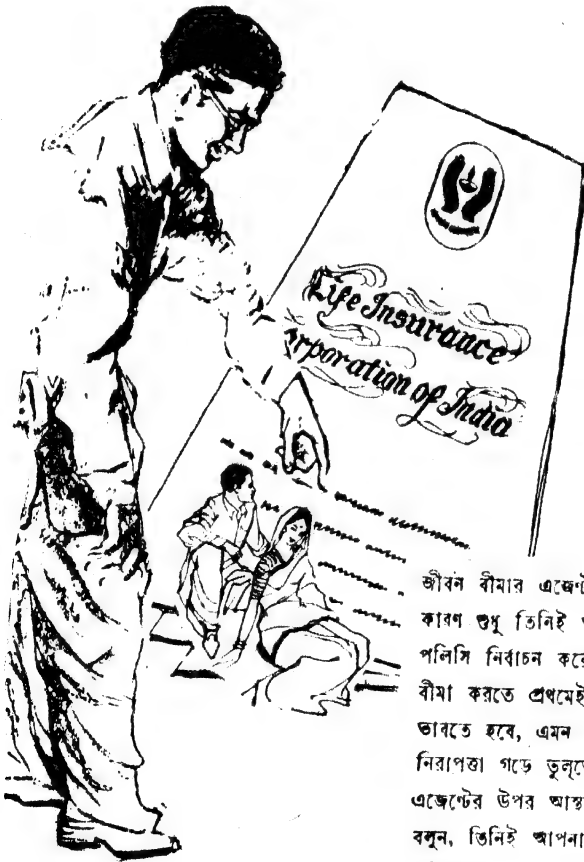 Life Insurance
rporation of India
জীবন বীমার এজেন্ট
কারণ শুধু তিনিই
পলিসি নির্বাচন করে
বীমা করতে প্রথমেই
ভাবতে হবে, এমন
নিরাপত্তা গড়ে তুল্‌তে
এজেন্টের উপর আস্থ
বলুন, তিনিই আপনা